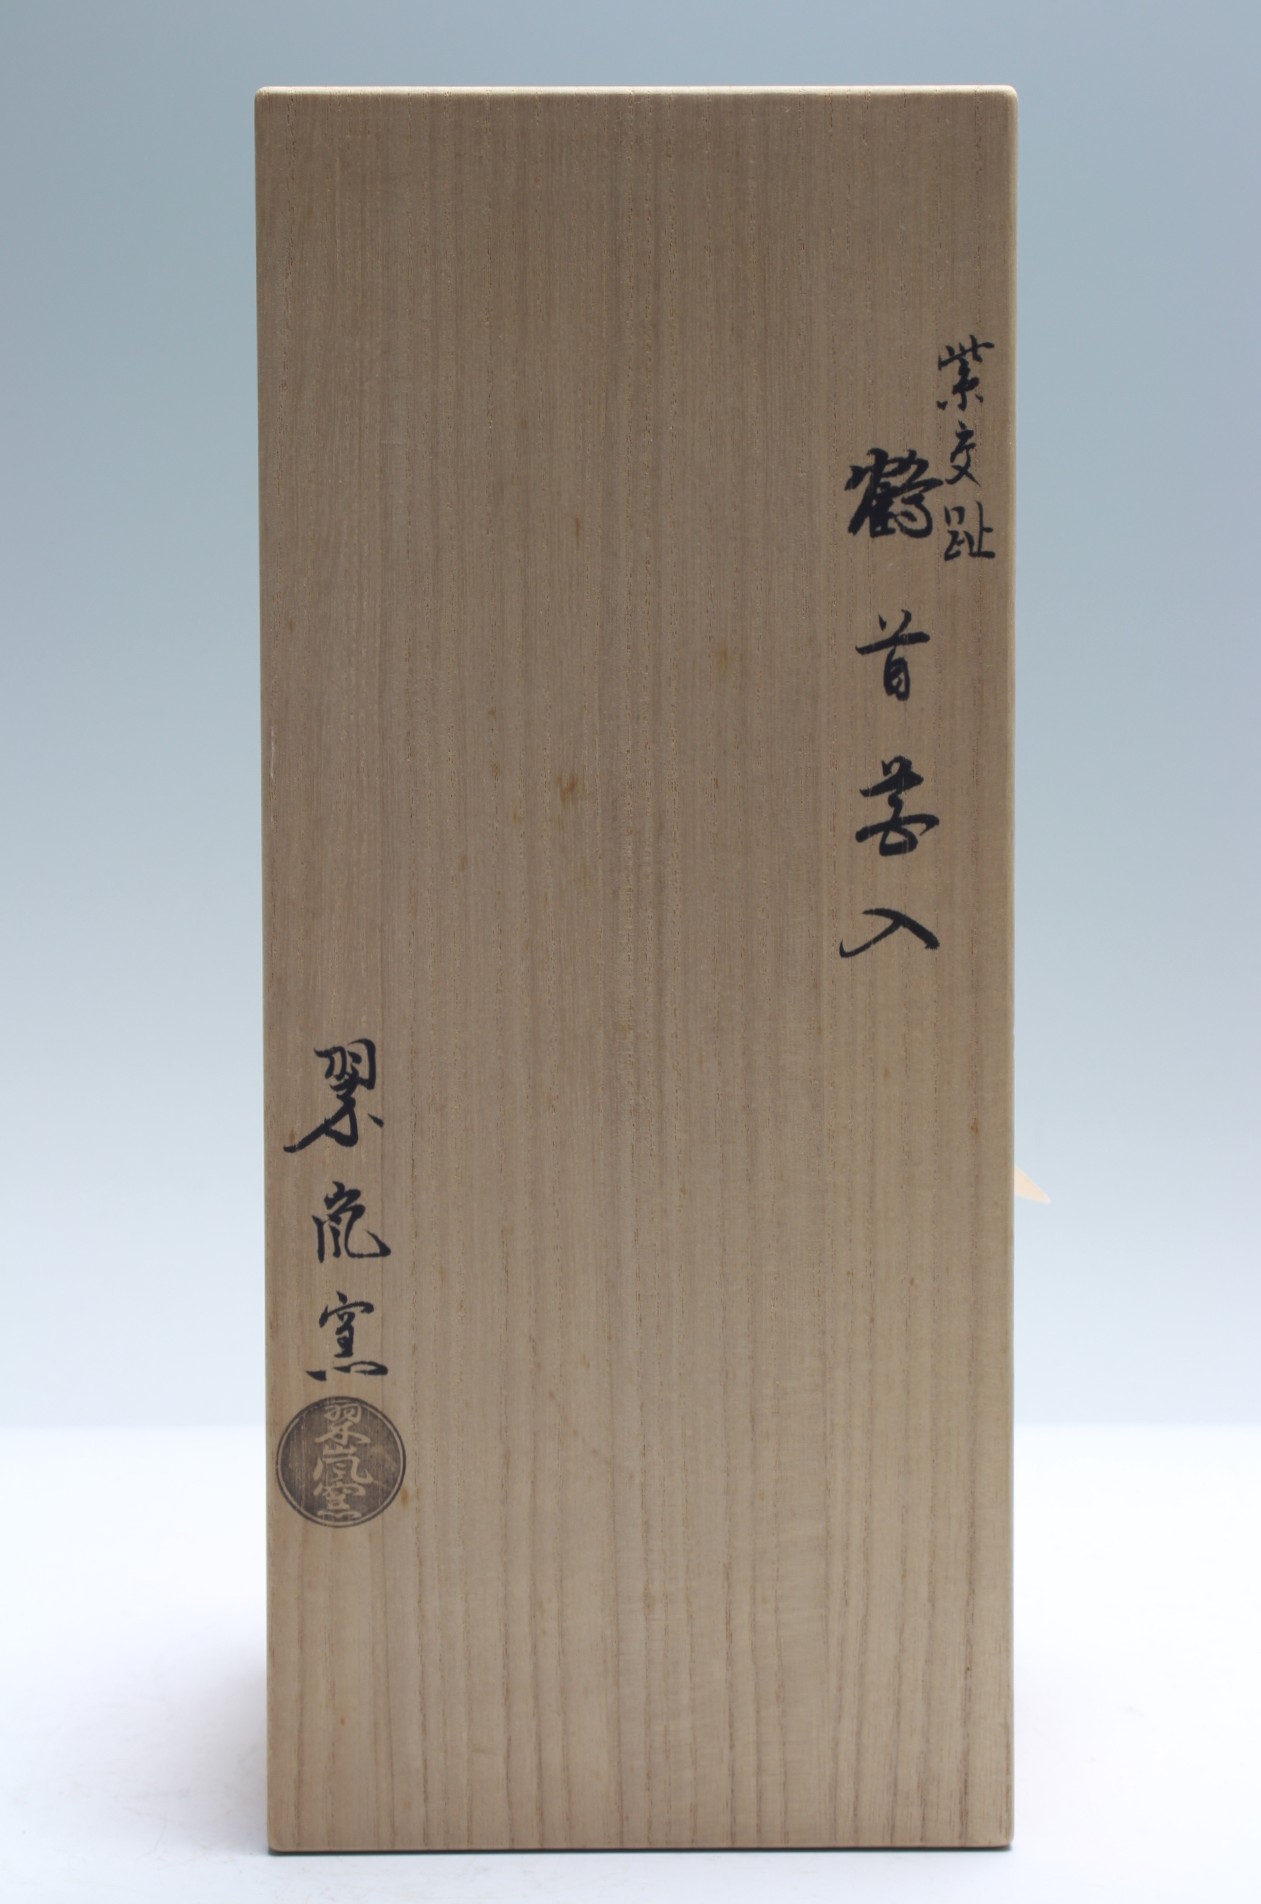 紫交趾
鶴首花入
翠嵐窯
翠嵐窯